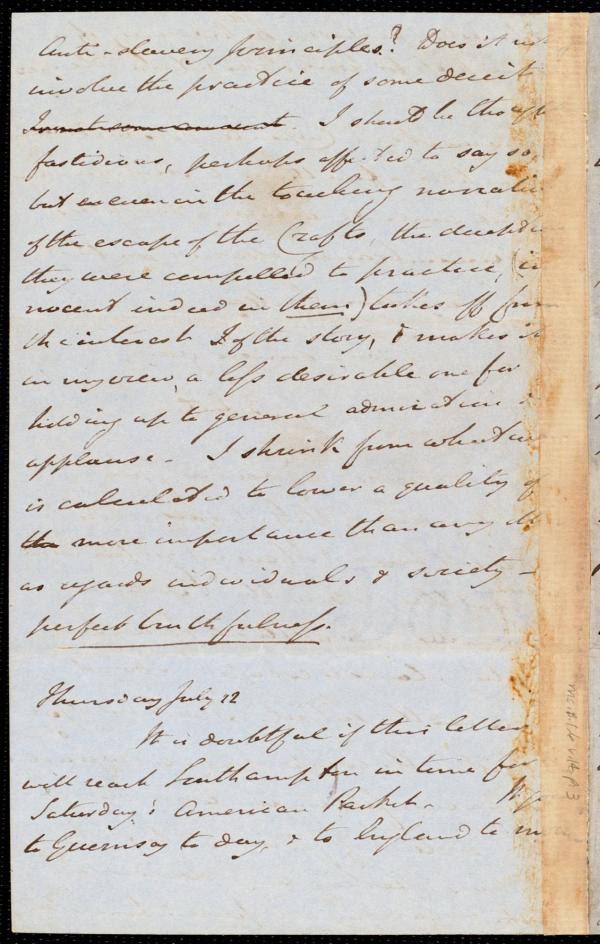 Anti-slavery principles? Does it not
involve the practice of some deceit
I should be thought
fastidious, perhaps affected to say so,
but even in the touching narrative
of the escape of the Crafts, the deception
they were compelled to practice, (in
nocent indeed in them) takes off from
the interest of the story, & makes it
in my view, a less desirable one for
holding up to general admiration &
applause - I shrink from whatever
is calculated to lower a quality of
the more importance than any other
as regards individuals & society -
perfect truthfulness.
Thursday July 12
It is doubtful if this letter
will reach Southampton in time for
Saturday's American Packet -
to Guernsey to day, & to England to
Ms.B.1.6 v.14, p.3